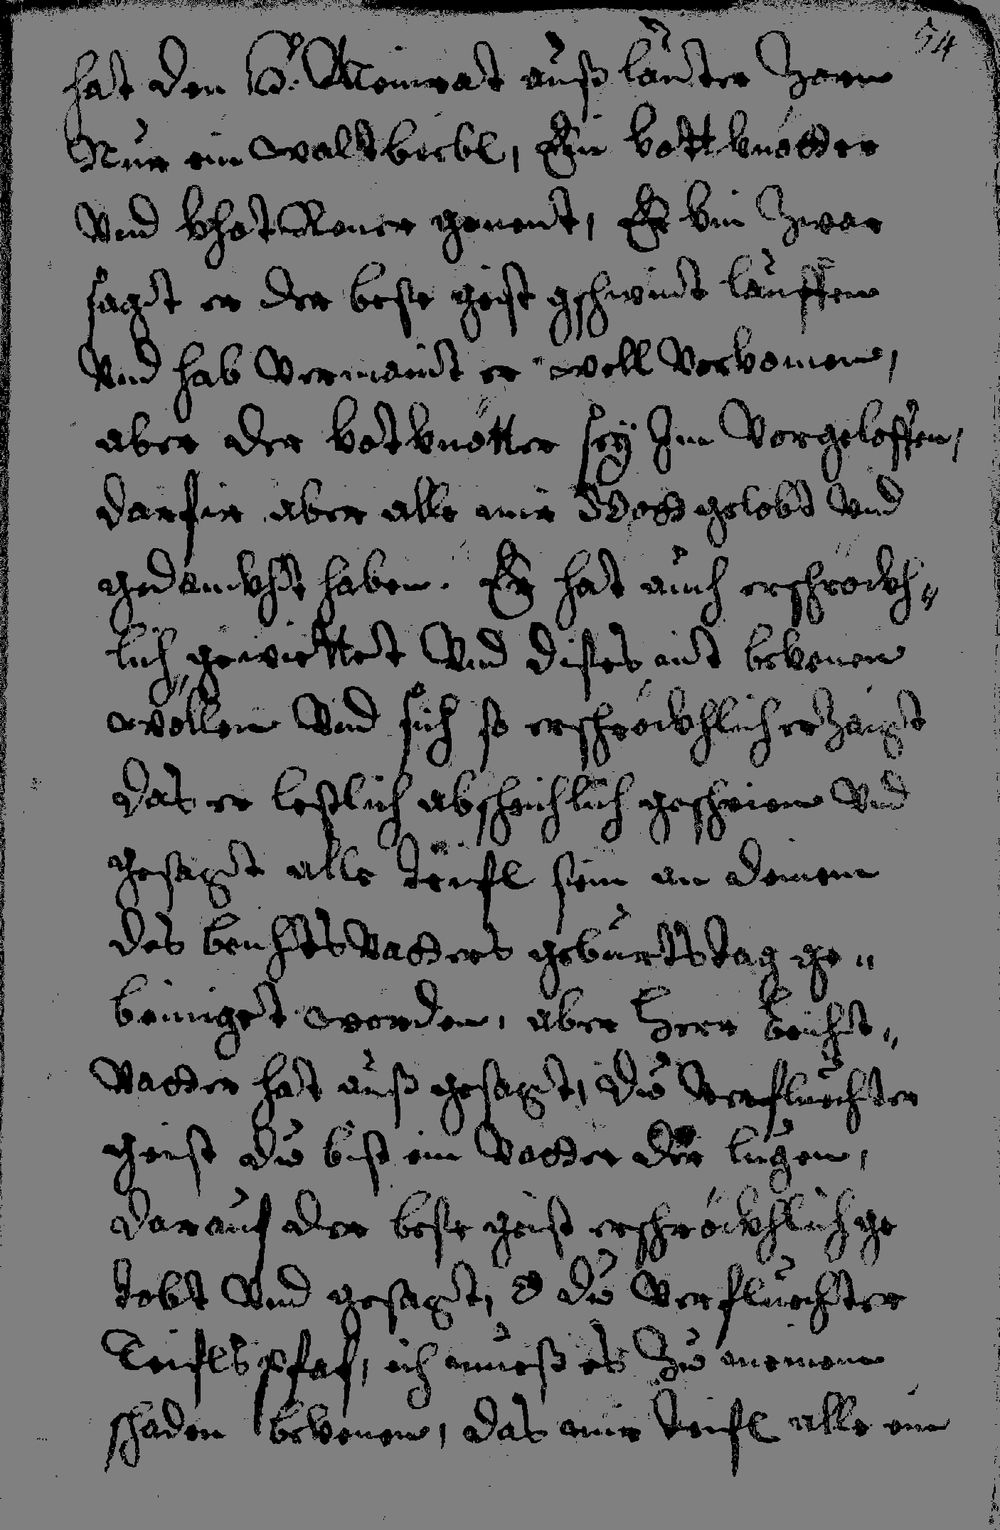 54
hat den H: Meinrat auß lauter Zorn
Nur ein waltbiebl, Ein bettknotter
Vnd genent, Er bin Zwar
sagt er der beste geist gschwint lauffen
Vnd hab Vermaint er well Vorkomen,
aber der botknotter sey Im Vorgeloffen,
darfir aber alle mir Gott gelobt Vnd
gedanckht haben. Er hat auch erschröckh„
lich gewiettet Vnd dises nit bekenen
wöllen Vnd sich so erschröckhlich erzaigt
das er lestlich abscheichlich geschrien Vnd
gesagt alle teifl sein an deinem
des beichtsVatters geburtstag ge„
beinigt worden, aber Herr beicht„
Vatter hat auß gesagt, Du Verfluechter
geist Du bist ein Vatter der lugen,
darauf der beste geist erschröckhlich ge
tobt Vnd gesagt, O du Verfluechter
Teiflspfaf, ich mueß es Zu meinem
schaden bekenen, das mir teifl alle ein